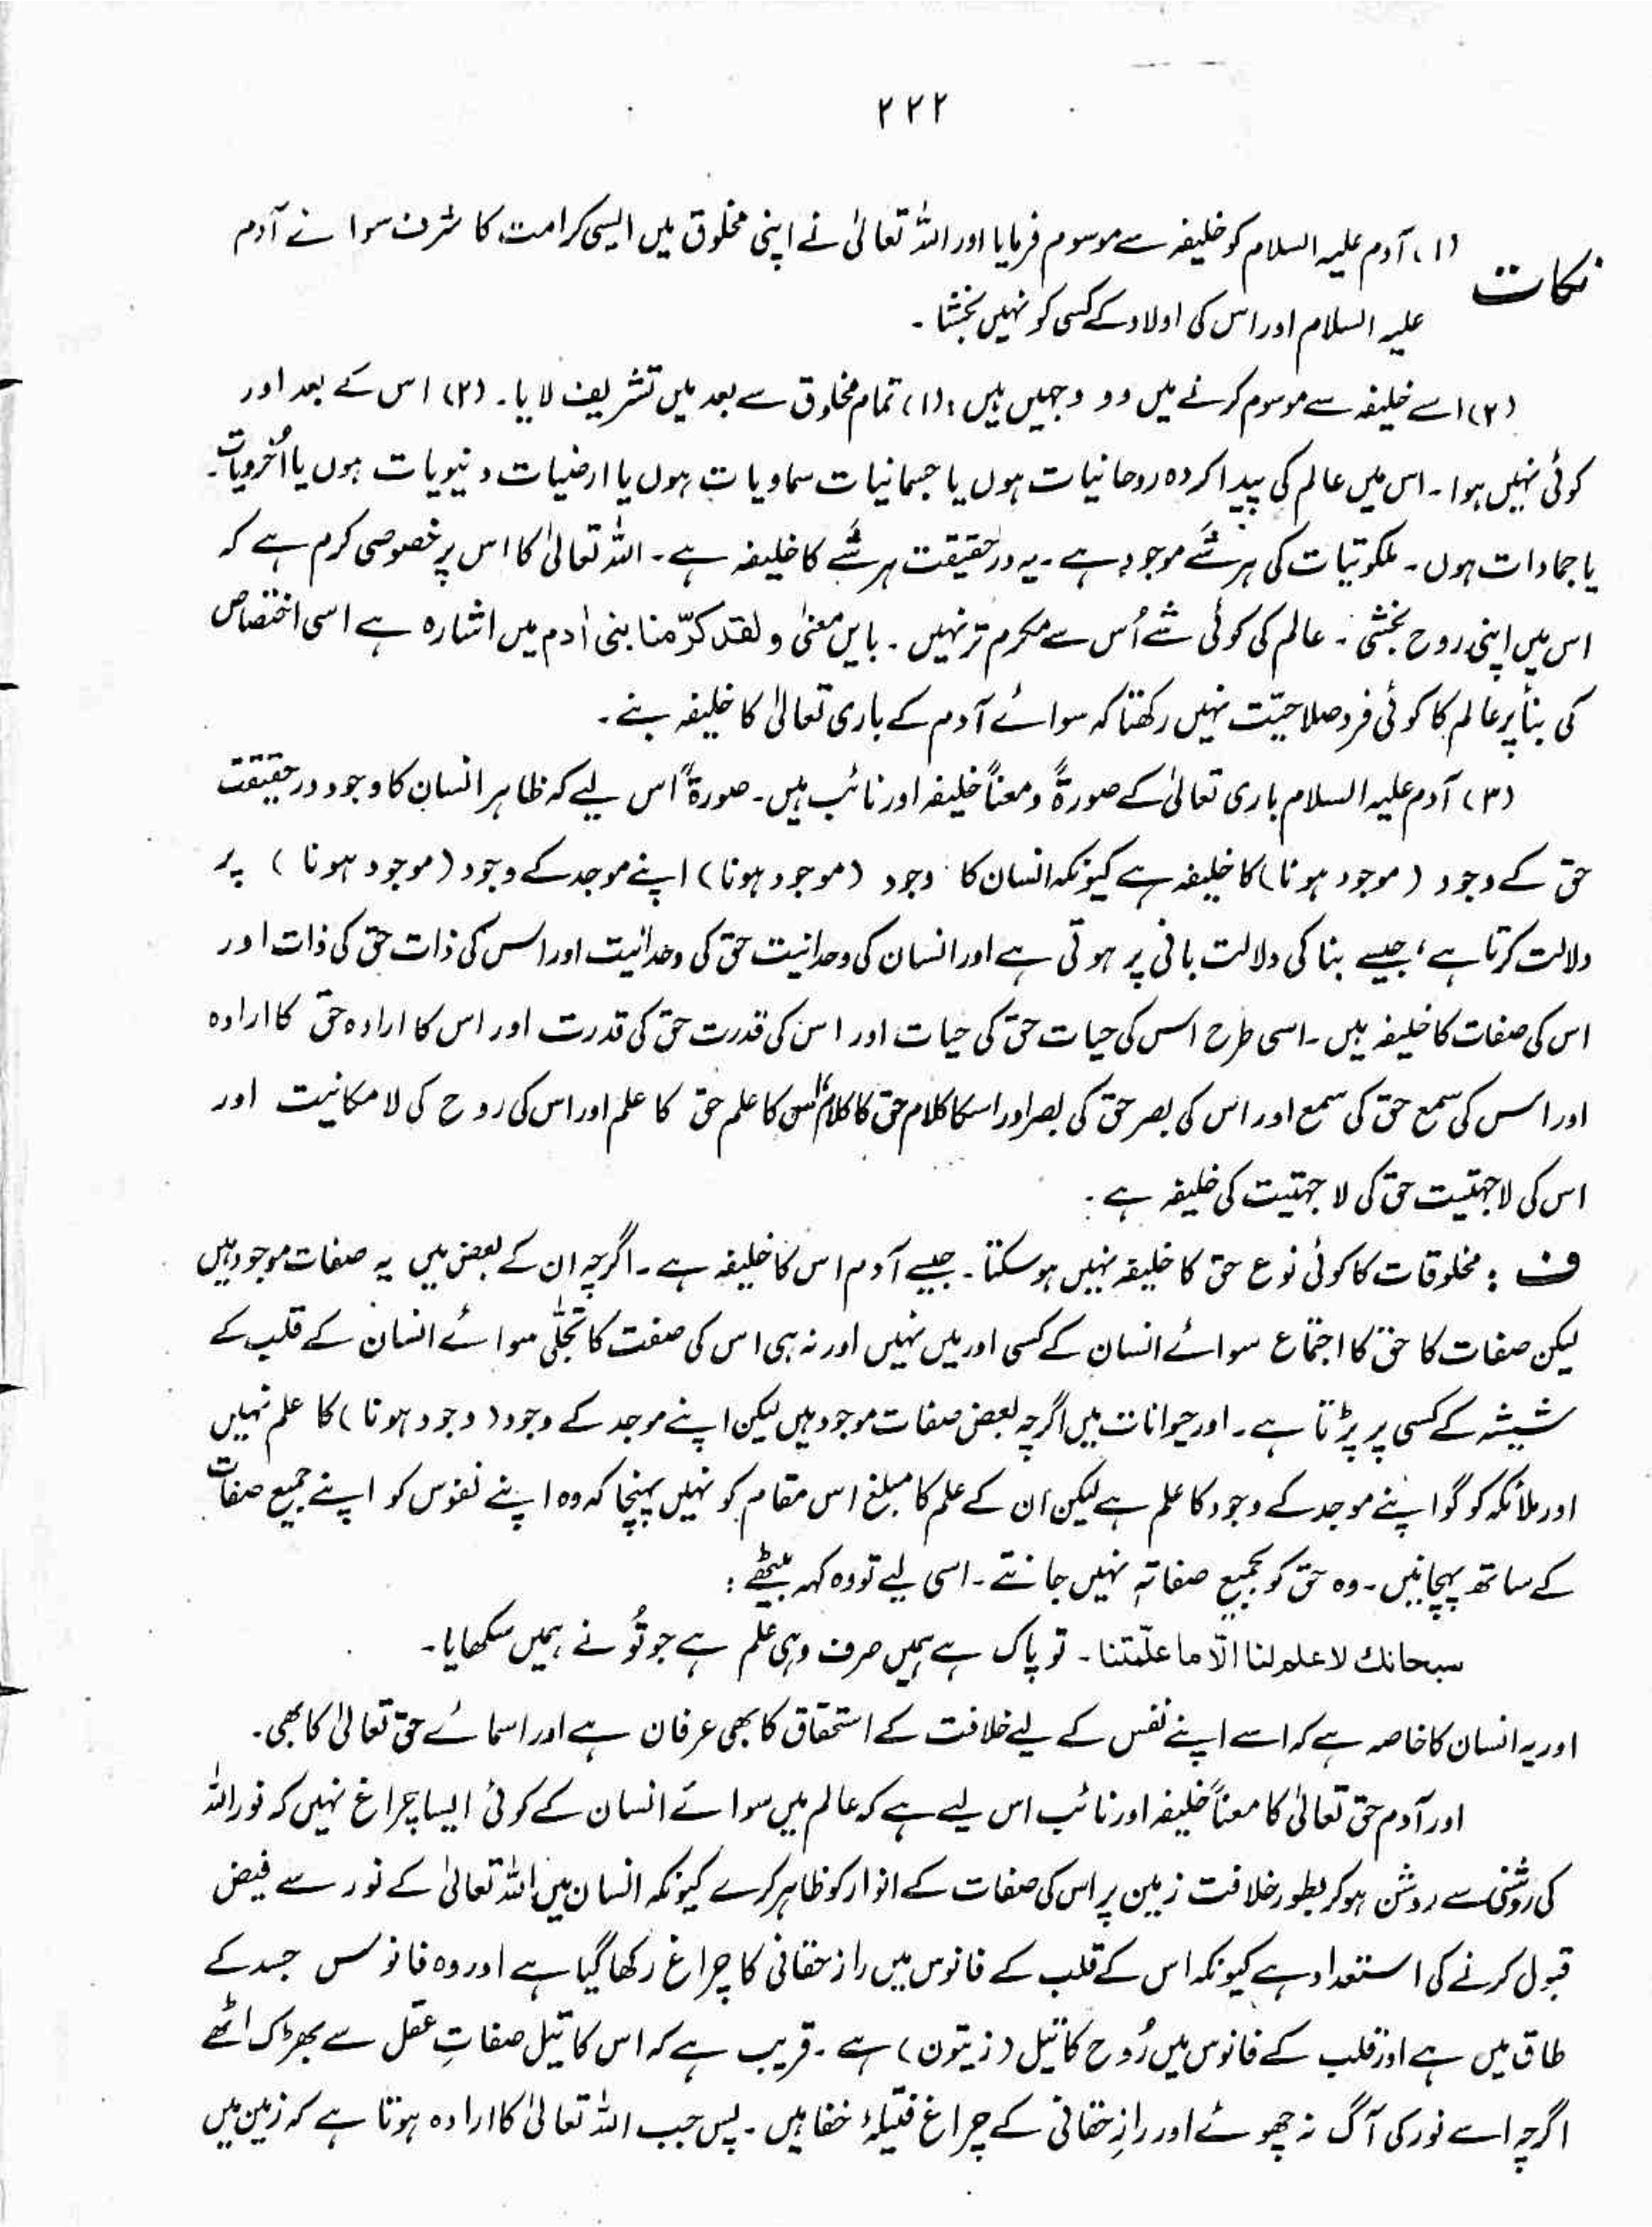 ۲۲۲
نکات (۱) آدم علیہ السلام کو خلیفہ سے موسوم فرمایا اور اللہ تعالیٰ نے اپنی مخلوق میں ایسی کرامت کا شرف سوائے آدم
علیہ السلام اور اس کی اولاد کے کسی کو نہیں بخشا۔
(۲) اسے خلیفہ سے موسوم کرنے میں دو وجہیں ہیں: (۱) تمام مخلوق سے بعد میں تشریف لایا۔ (۲) اس کے بعد اور
کوئی نہیں ہوا۔ اس میں عالم کی پیدا کردہ روحانیات ہوں یا جسمانیات سماویات ہوں یا ارضیات دنیویات ہوں یا اُخرویات۔
یا جمادات ہوں۔ ملکوتیات کی ہر شے موجود ہے۔ یہ درحقیقت ہر شے کا خلیفہ ہے۔ اللہ تعالیٰ کا اس پر خصوصی کرم ہے کہ
اس میں اپنی روح بخشی۔ عالم کی کوئی شے اُس سے مکرم تر نہیں۔ بایں معنیٰ ولقد کرّمنا بنی اٰدم میں اشارہ ہے اسی اختصاص
کی بنأ پر عالم کا کوئی فرد صلاحیّت نہیں رکھتا کہ سوائے آدم کے باری تعالیٰ کا خلیفہ بنے۔
(۳) آدم علیہ السلام باری تعالیٰ کے صورۃً و معناً خلیفہ اور نائب ہیں۔ صورۃً اس لیے کہ ظاہر انسان کا وجود درحقیقت
حق کے وجود (موجود ہونا) کا خلیفہ ہے کیونکہ انسان کا وجود (موجود ہونا) اپنے موجد کے وجود (موجود ہونا) پر
دلالت کرتا ہے، جیسے بنا کی دلالت بانی پر ہوتی ہے اور انسان کی وحدانیت حق کی وحدانیت اور اس کی ذات حق کی ذات اور
اس کی صفات کا خلیفہ ہیں۔ اسی طرح اس کی حیات حق کی حیات اور اس کی قدرت حق کی قدرت اور اس کا ارادہ حق کا ارادہ
اور اس کی سمع حق کی سمع اور اس کی بصر حق کی بصر اور اسکا کلام حق کا کلام اس کا علم حق کا علم اور اس کی روح کی لامکانیت اور
اس کی لاجہتیت حق کی لاجہتیت کی خلیفہ ہے۔
ف : مخلوقات کا کوئی نوع حق کا خلیفہ نہیں ہو سکتا۔ جیسے آدم اس کا خلیفہ ہے۔ اگرچہ ان کے بعض میں یہ صفات موجود ہیں
لیکن صفات کا حق کا اجتماع سوائے انسان کے کسی اور میں نہیں اور نہ ہی اس کی صفت کا تجلّی سوائے انسان کے قلب کے
شیشہ کے کسی پر پڑتا ہے۔ اور حیوانات میں اگرچہ بعض صفات موجود ہیں لیکن اپنے موجد کے وجود (وجود ہونا) کا علم نہیں
اور ملائکہ کو گو اپنے موجد کے وجود کا علم ہے لیکن ان کے علم کا مبلغ اس مقام کو نہیں پہنچا کہ وہ اپنے نفوس کو اپنے جمیع صفات
کے ساتھ پہچانیں۔ وہ حق کو بجمیع صفاتہٖ نہیں جانتے۔ اسی لیے تو وہ کہہ بیٹھے:
سبحانك لا علم لنا الّا ما علّمتنا۔ تو پاک ہے ہمیں صرف وہی علم ہے جو تُو نے ہمیں سکھایا۔
اور یہ انسان کا خاصہ ہے کہ اسے اپنے نفس کے لیے خلافت کے استحقاق کا بھی عرفان ہے اور اسمائے حق تعالیٰ کا بھی۔
اور آدم حق تعالیٰ کا معناً خلیفہ اور نائب اس لیے ہے کہ عالم میں سوائے انسان کے کوئی ایسا چراغ نہیں کہ نور اللہ
کی روشنی سے روشن ہو کر بطور خلافت زمین پر اس کی صفات کے انوار کو ظاہر کرے کیونکہ انسان میں اللہ تعالیٰ کے نور سے فیض
قبول کرنے کی استعداد ہے کیونکہ اس کے قلب کے فانوس میں رازِ خفائی کا چراغ رکھا گیا ہے اور وہ فانوس جسد کے
طاق میں ہے اور قلب کے فانوس میں رُوح کا تیل (زیتون) ہے۔ قریب ہے کہ اس کا تیل صفاتِ عقل سے بھڑک اٹھے
اگرچہ اسے نور کی آگ نہ چھوئے اور رازِ خفائی کے چراغ فتیلۂ خفا ہیں۔ پس جب اللہ تعالیٰ کا ارادہ ہوتا ہے کہ زمین میں